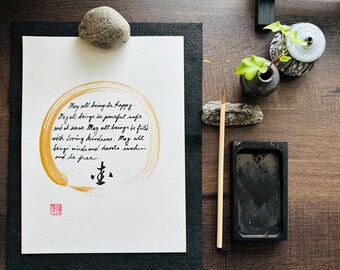 May all beings be happy.
May all beings be peaceful safe
and at ease. May all beings be filled
with loving kindness. May all
beings minds and hearts awaken
and be free.